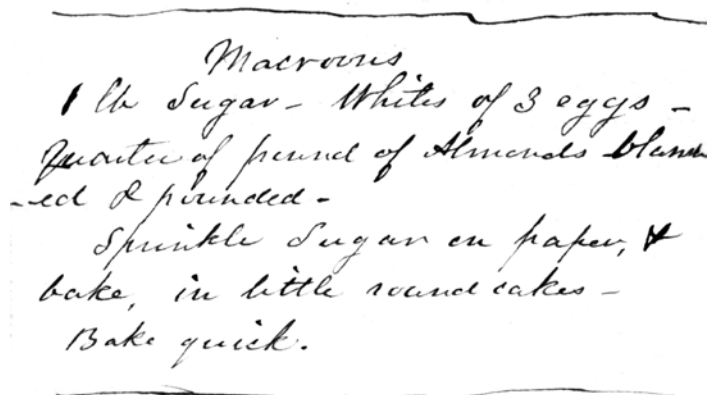 Macroons
1 lb Sugar - Whites of 3 eggs -
Quarter of pound of Almonds blanch
-ed & pounded -
Sprinkle Sugar on paper, &
bake, in little round cakes -
Bake quick.